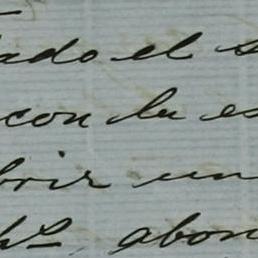 ado el s
con la es
brir un
abon